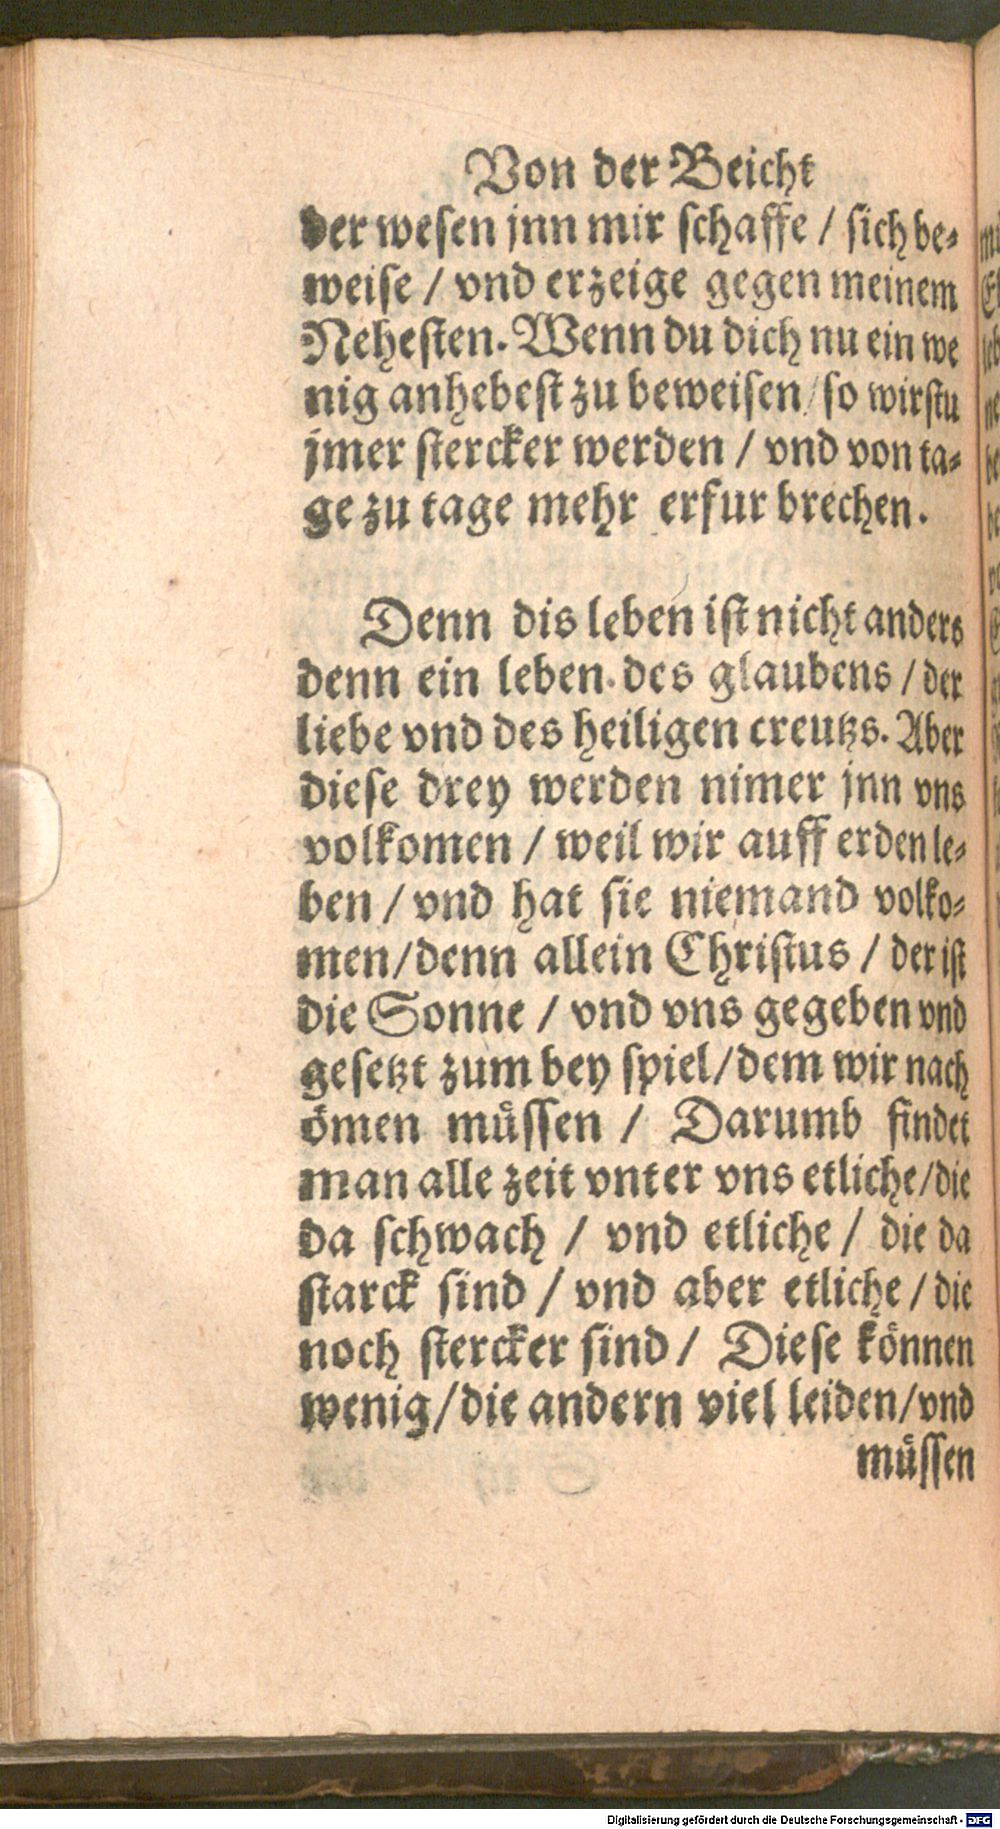 Von der Beicht
der wesen jnn mir schaffe / sich be⸗
weise / vnd erzeige gegen meinem
Nehesten. Wenn du dich nu ein we
nig anhebest zu beweisen / so wirstu
jmer stercker werden / vnd von ta⸗
ge zu tage mehr erfur brechen.
Denn dis leben ist nicht anders
denn ein leben des glaubens / der
liebe vnd des heiligen creutzs. Aber
diese drey werden nimer jnn vns
volkomen / weil wir auff erden le⸗
ben / vnd hat sie niemand volko⸗
men / denn allein Christus / der ist
die Sonne / vnd vns gegeben vnd
gesetzt zum bey spiel / dem wir nach
ömen müssen / Darumb findet
man alle zeit vnter vns etliche / die
da schwach / vnd etliche / die da
starck sind / vnd aber etliche / die
noch stercker sind / Diese können
wenig / die andern viel leiden / vnd
müssen
Digitalisierung gefördert durch die Deutsche Forschungsgemeinschaft - DFG